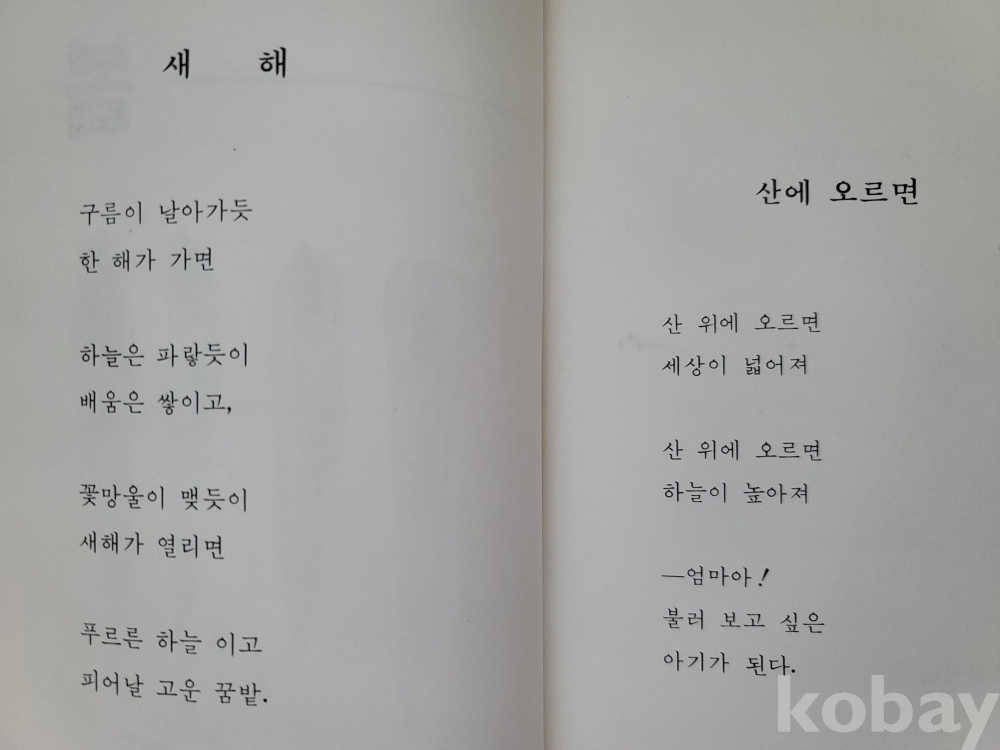 새 해
구름이 날아가듯
한 해가 가면
하늘은 파랗듯이
배움은 쌓이고,
꽃망울이 맺듯이
새해가 열리면
푸르른 하늘 이고
피어날 고운 꿈밭.
산에 오르면
산 위에 오르면
세상이 넓어져
산 위에 오르면
하늘이 높아져
—엄마아!
불러 보고 싶은
아기가 된다.
kobay